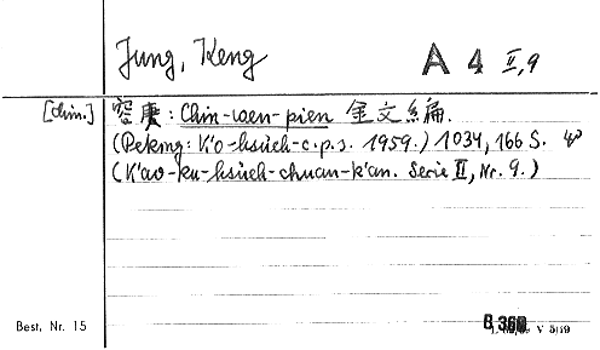 Jung, Keng A 4 II,9
[chin.] 容庚: Chin-wen-pien 金文編.
(Peking: K'o-hsüeh-c.p.s. 1959.) 1034, 166 S. 4°
(K'ao-ku-hsüeh-chuan-k'an. Serie II, Nr. 9.)
Best. Nr. 15 B 360 V 5/19